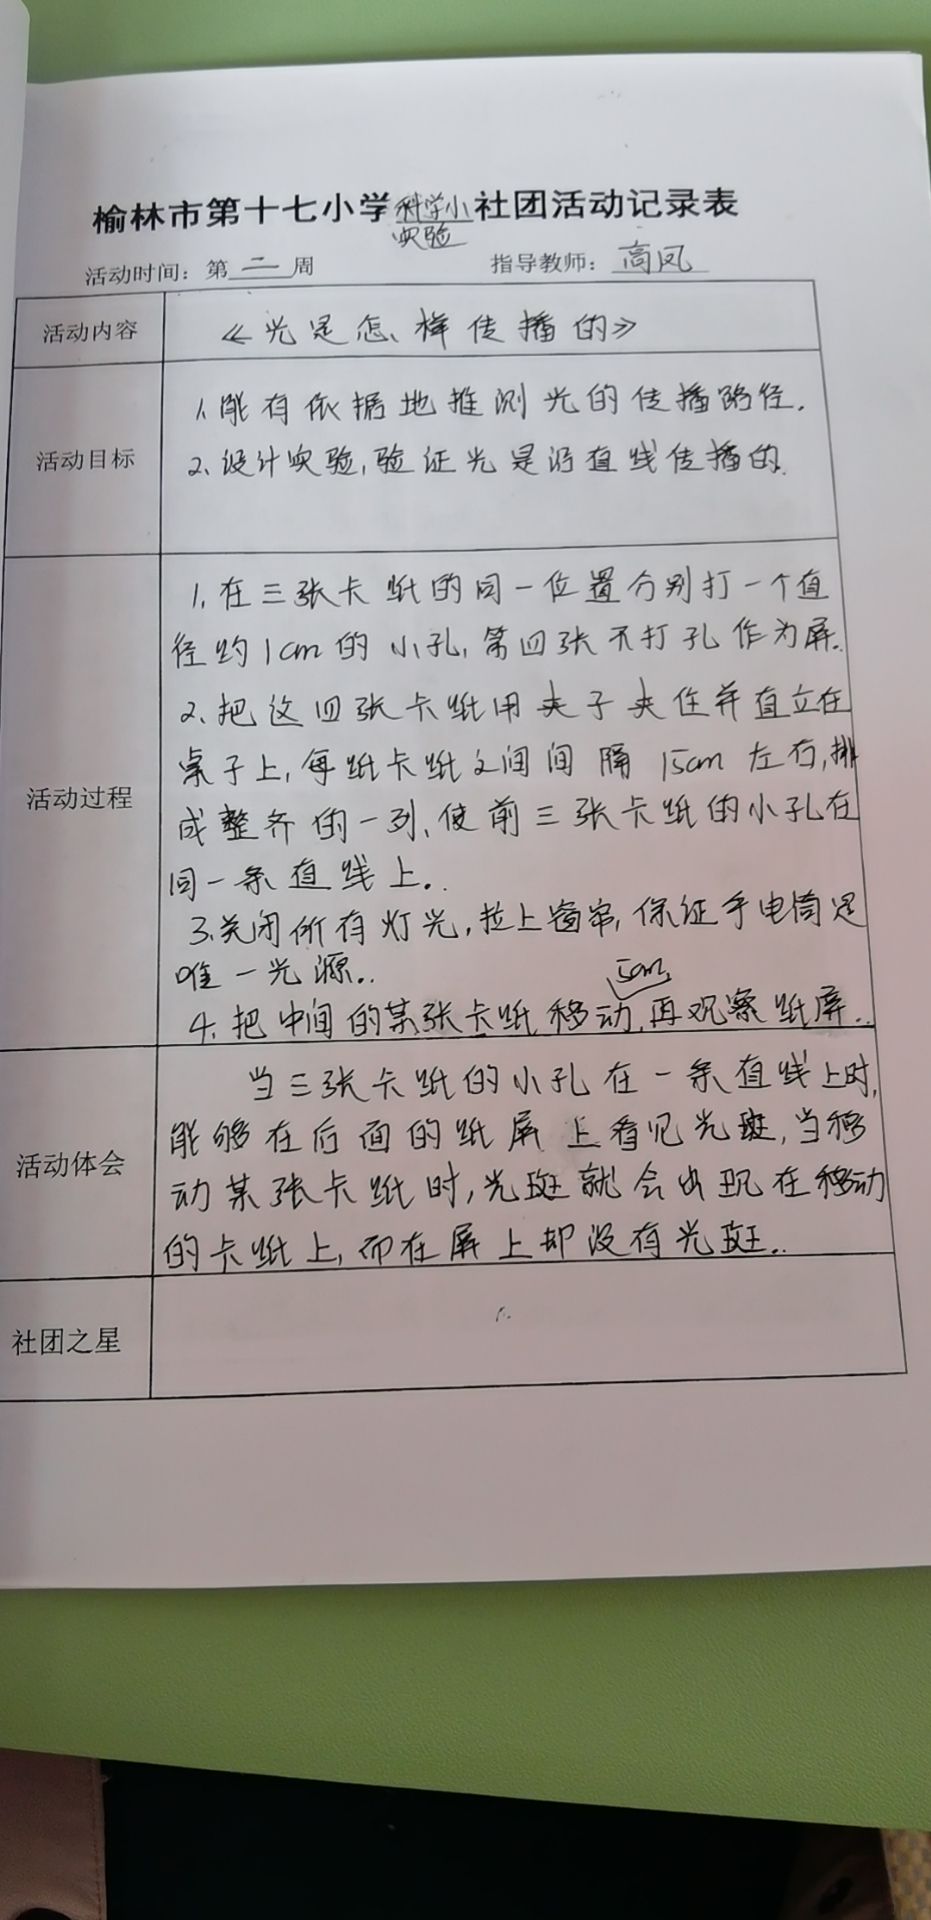 榆林市第十七小学科学小实验社团活动记录表
活动时间：第二周 指导教师：高凤
活动内容
《光是怎样传播的》
活动目标
1.能有依据地推测光的传播路径.
2.设计实验,验证光是沿直线传播的.
活动过程
1.在三张卡纸的同一位置分别打一个直
径约1cm的小孔,第四张不打孔作为屏.
2.把这四张卡纸用夹子夹住并直立在
桌子上,每纸卡纸之间间隔15cm左右,排
成整齐的一列,使前三张卡纸的小孔在
同一条直线上..
3.关闭所有灯光,拉上窗帘,保证手电筒是
唯一光源..
4.把中间的某张卡纸移动5cm,再观察纸屏..
活动体会
当三张卡纸的小孔在一条直线上时,
能够在后面的纸屏上看见光斑,当移
动某张卡纸时,光斑就会出现在移动
的卡纸上,而在屏上却没有光斑..
社团之星